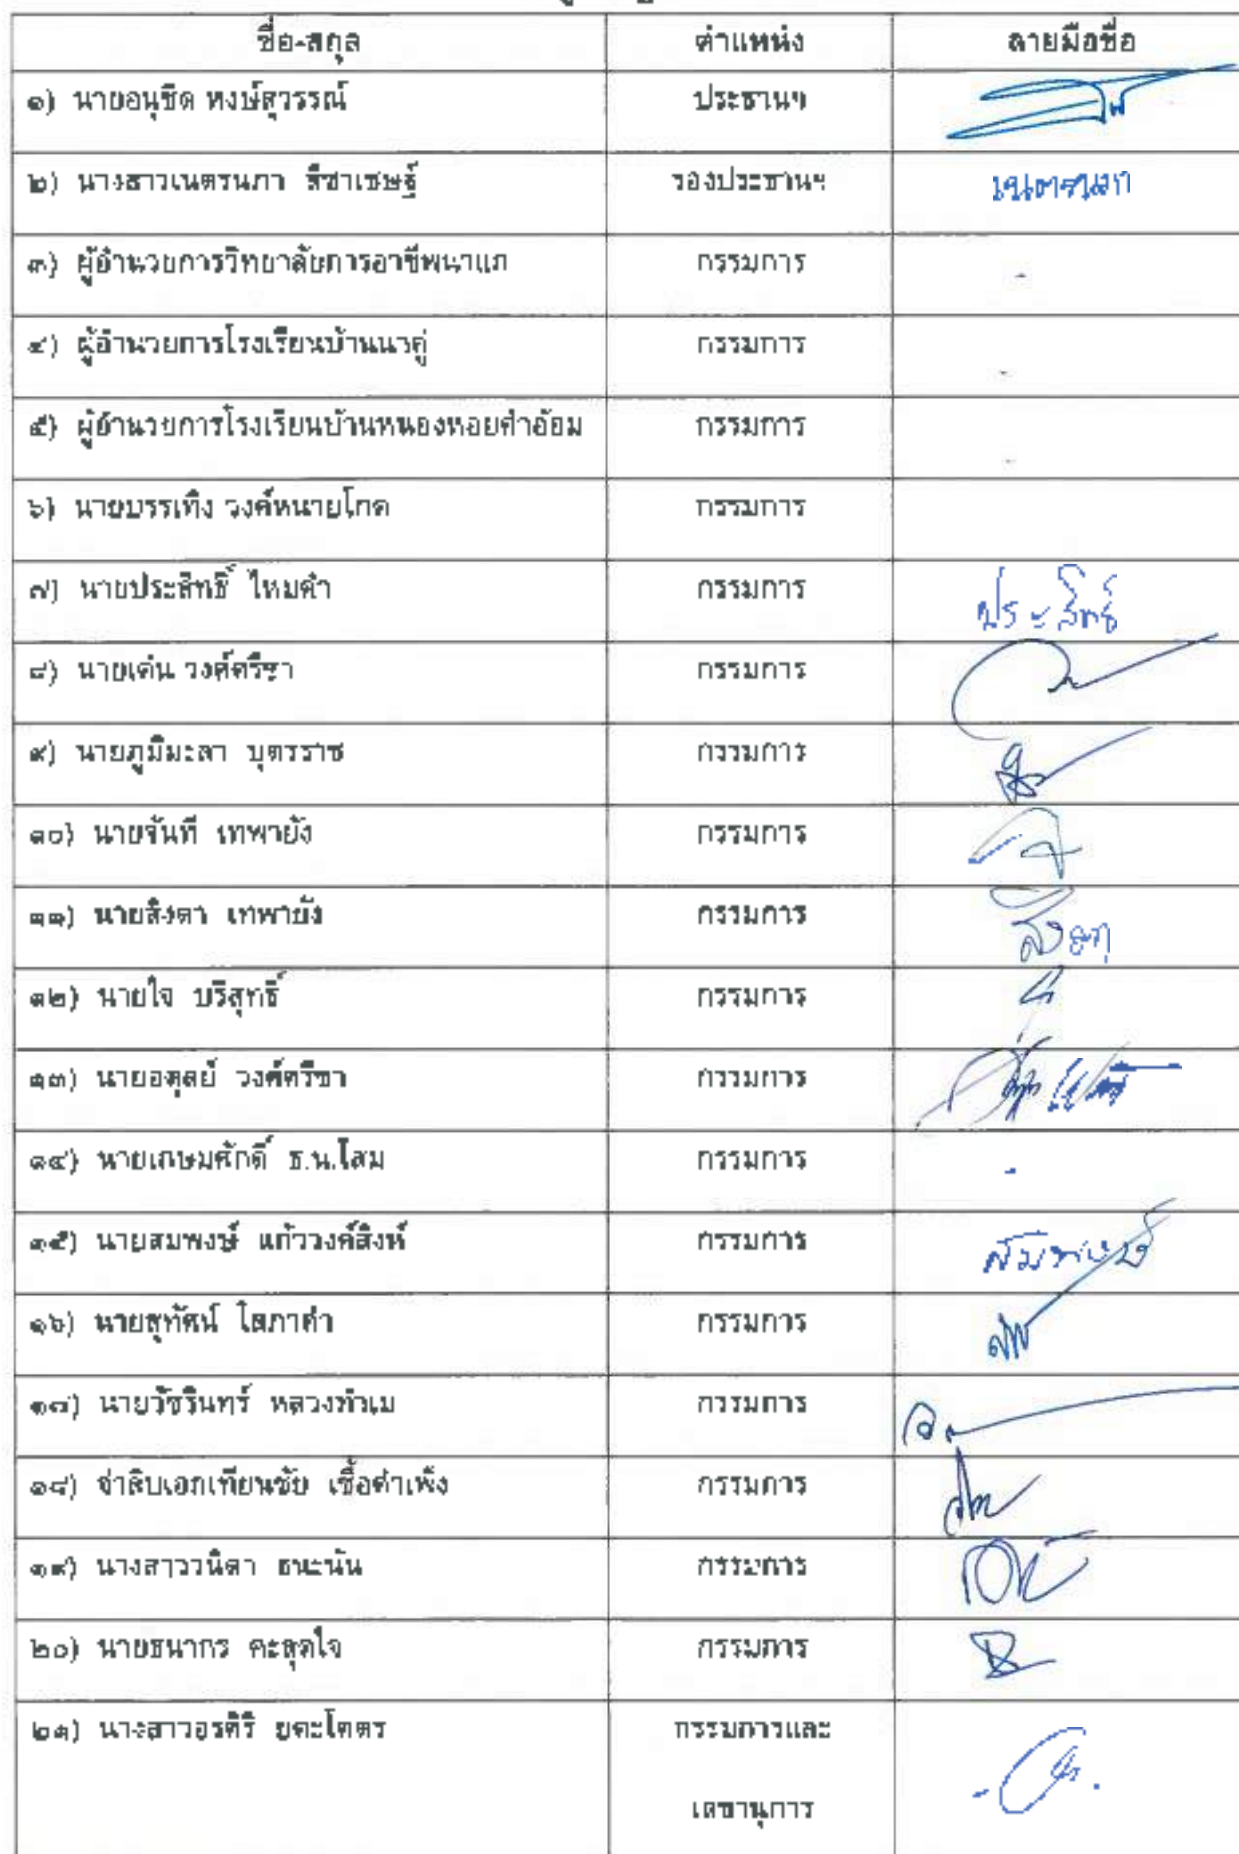 ชื่อ-สกุล ตำแหน่ง ลายมือชื่อ
๑) นายอนุชิด หงษ์สุวรรณ์ ประธานฯ
๒) นางสาวเนตรนภา ลีชาเชษฐ์ รองประธานฯ เนตรนภา
๓) ผู้อำนวยการวิทยาลัยการอาชีพนาแก กรรมการ -
๔) ผู้อำนวยการโรงเรียนบ้านนาคู่ กรรมการ -
๕) ผู้อำนวยการโรงเรียนบ้านหนองหอยคำอ้อม กรรมการ -
๖) นายบรรเทิง วงค์หนายโกด กรรมการ
๗) นายประสิทธิ์ ไหมคำ กรรมการ ประสิทธิ์
๘) นายเด่น วงค์ศรีชา กรรมการ
๙) นายภูมีมะลา บุตรราช กรรมการ
๑๐) นายจันที เทพายัง กรรมการ
๑๑) นายสิงดา เทพายัง กรรมการ
๑๒) นายใจ บริสุทธิ์ กรรมการ
๑๓) นายอดุลย์ วงค์ศรีชา กรรมการ
๑๔) นายเกษมศักดิ์ ธ.น.โสม กรรมการ -
๑๕) นายสมพงษ์ แก้ววงค์สิงห์ กรรมการ สมพงษ์
๑๖) นายสุทัศน์ โสภาคำ กรรมการ
๑๗) นายวัชรินทร์ หลวงทำเม กรรมการ
๑๘) จ่าสิบเอกเทียนชัย เชื้อคำเพ็ง กรรมการ
๑๙) นางสาววนิดา ธนะนัน กรรมการ
๒๐) นายธนากร คะสุดใจ กรรมการ
๒๑) นางสาวอรศิริ ยตะโคตร กรรมการและ
เลขานุการ